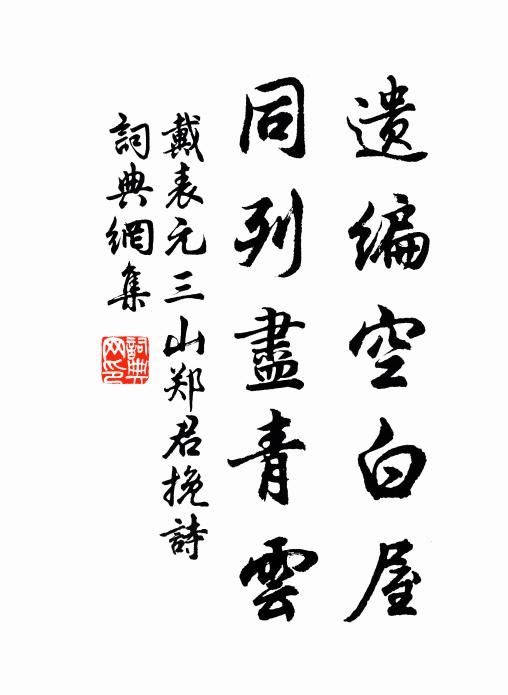 遺編空白屋
同列盡青雲
戴表元三山郑君挽詩
詞典網集
詞典网印